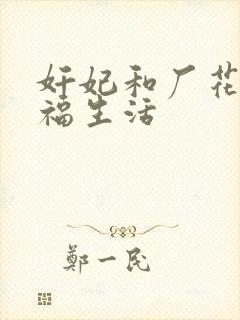 奸妃和厂花
福生活
鄭一民